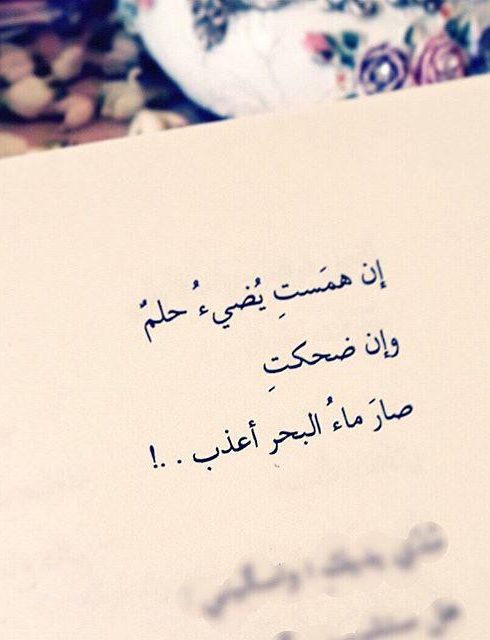 إن همَستِ يُضيءُ حلمٌ
وإن ضحكتِ
صارَ ماءُ البحر أعذب . . .!